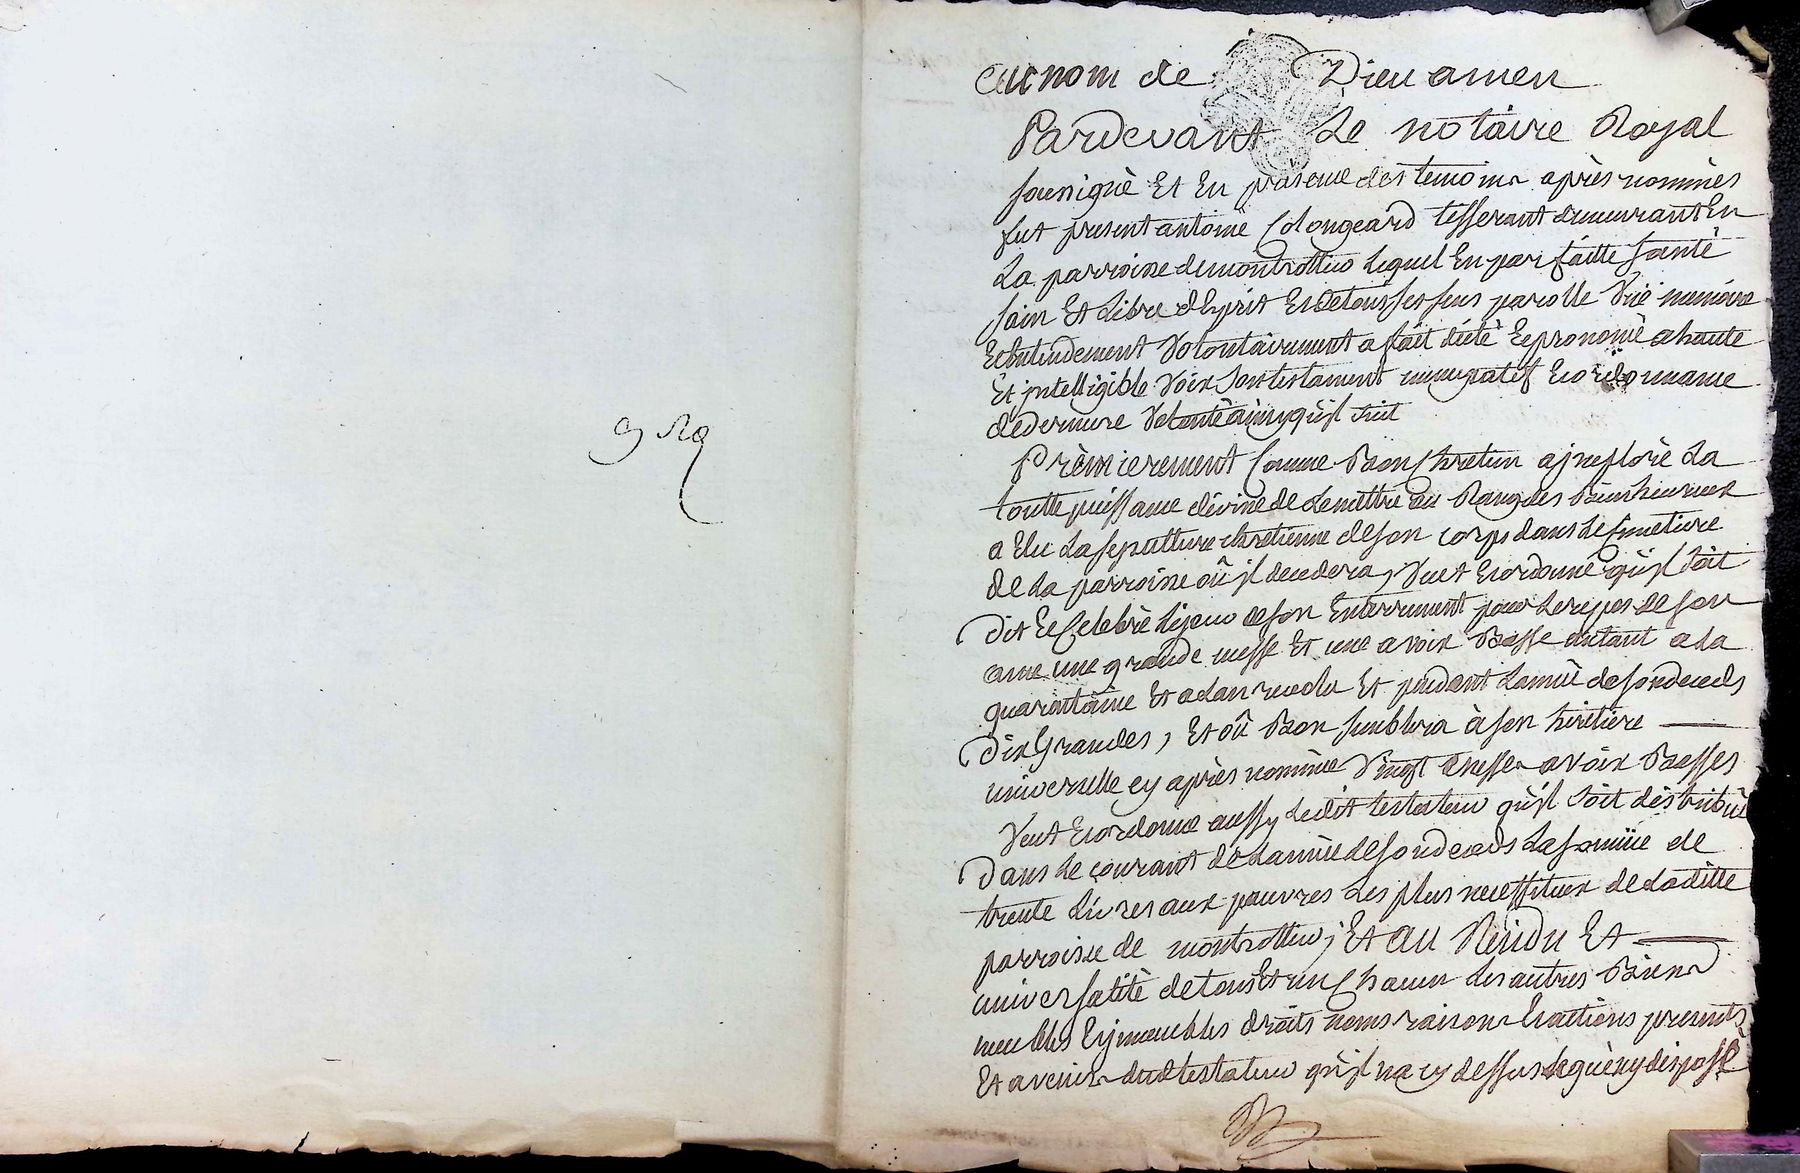 Au nom de Dieu amen
Pardevant Le notaire Royal
soussigné Et En presence des temoins après nommés
fut present antoine Colongeard tesserant demeurant En
La parroisse de montrottier Lequel En parfaitte santé
sain Et Libre d'Esprit Et de tous ses sens parolle vüe memoire
Et Entendement volontairement a fait dicté Et prononcé a haute
Et jntelligible voix son testament nuncupatif Et ordonnance
de derniere volonté ainsy qu'jl suit
Premierement Comme Bon Chretien a jmploré La
toutte puissance divine de Le mettre au Rang des Bienheureux
a Elu La sepulture chretienne de son corps dans Le Cimetiere
de La parroisse où jl decedera, veut Et ordonne qu'jl soit
dit Et Celebré Le jour de son Enterrement pour Le repos de son
ame une grande messe Et une a voix Basse autant a La
quarantaine Et a L'an revolu Et pendant L'année de son deceds
dix Grandes, Et où Bon semblera à son heritiere
universelle cy après nommée vingt messes a voix Basses
Veut Et ordonne aussy Ledit testateur qu'jl soit distribüé
Dans Le courant de L'année de son deceds La somme de
trente Livres aux pauvres Les plus necessiteux de Laditte
parroisse de montrottier, Et au Residu Et
universalité de tous Et un Chacun Les autres Biens
meubles Et jmmeubles droits noms raisons Et actions presents
Et avenir dudit testateur qu'jl n'a cy dessus disposé